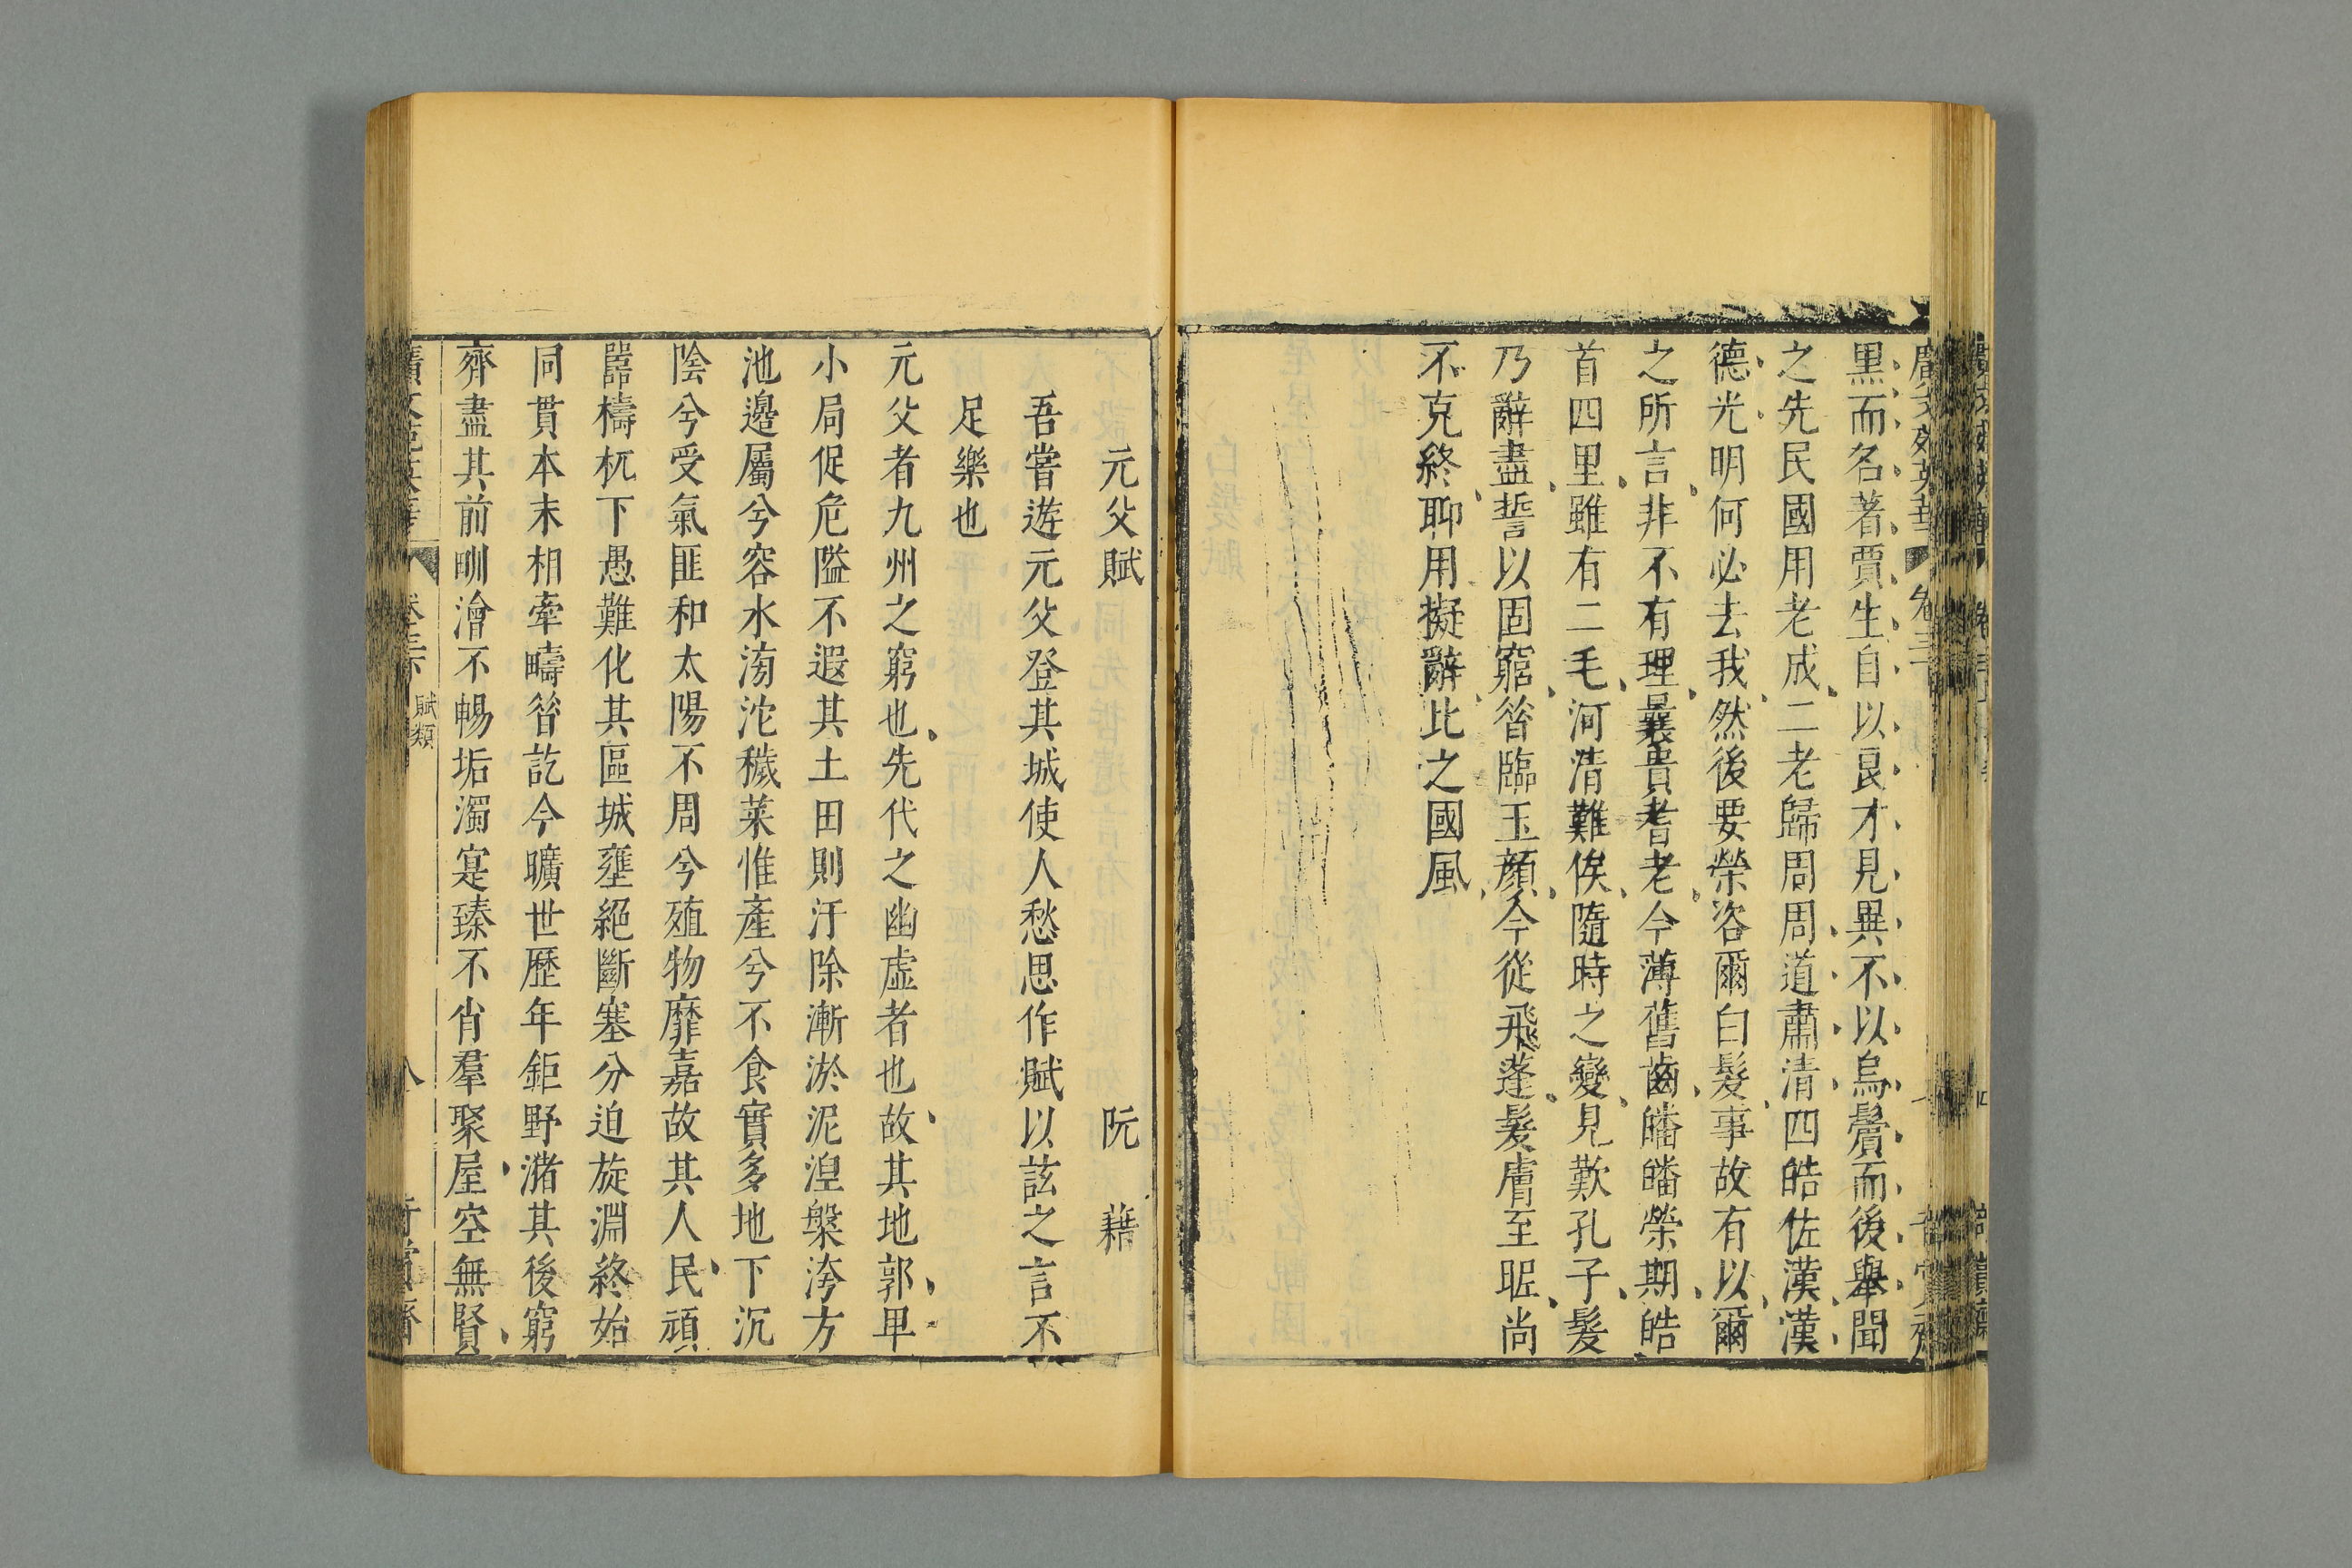 廣文苑英華
卷三
黒而名著賈生自以良才見異不以烏鬢而後舉聞
之先民國用老成二老歸周周道肅清四皓佐漢漢
德光明何必去我然後要榮咨爾白髮事故有以爾
之所言非不有理曩貴耆老今薄舊齒皤皤榮期皓
首四里雖有二毛河清難俟隨時之變見歎孔子髮
乃辭盡誓以固窮昝臨玉顏今從飛蓬髮膚至昵尚
不克終聊用擬辭比之國風
元父賦　阮　藉
吾嘗遊元父登其城使人愁思作賦以詃之言不
足樂也
元父者九州之窮也先代之幽虛者也故其地郭卑
小局促危隘不遐其土田則汙除漸淤泥湟槃洿方
池邊屬兮容水滂沱穢萊惟產兮不食實多地下沉
陰兮受氣匪和太陽不周兮殖物靡嘉故其人民頑
嚚檮杌下愚難化其區城壅絕斷塞分迫旋淵終始
同貫本末相牽疇昝訖今曠世歷年鉅野瀦其後窮
齊盡其前畎澮不暢垢濁寔臻不肖羣聚屋空無賢
賦類
八